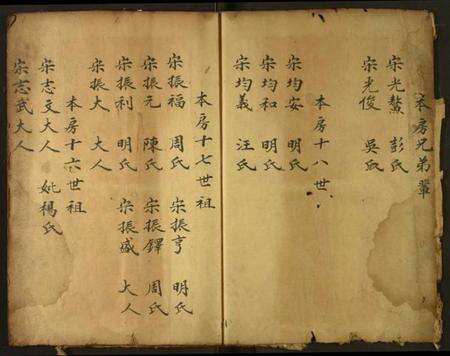 本房兄弟輩
宋光鰲 彭氏
宋光俊 吳氏
本房十八世
宋均安 明氏
宋均和 明氏
宋均義 汪氏
本房十七世祖
宋振福 周氏 宋振亨 明氏
宋振元 陳氏 宋振鐸 周氏
宋振利 明氏 宋振盛 大人
宋振大 大人
本房十六世祖
宋志文大人 妣楊氏
宋志武大人